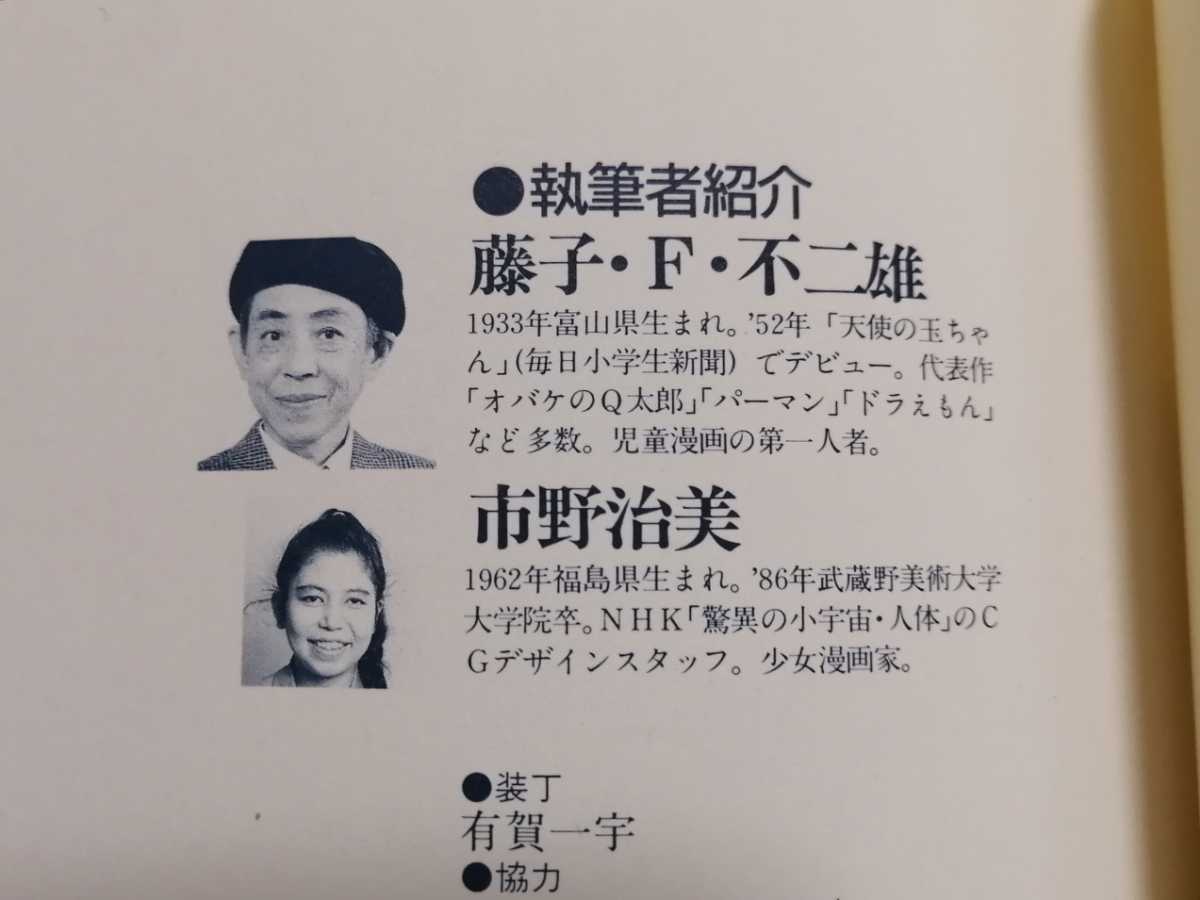 ●執筆者紹介
藤子・F・不二雄
1933年富山県生まれ。'52年「天使の玉ちゃ
ん」(毎日小学生新聞) でデビュー。代表作
「オバケのQ太郎」「パーマン」「ドラえもん」
など多数。児童漫画の第一人者。
市野治美
1962年福島県生まれ。'86年武蔵野美術大学
大学院卒。NHK「驚異の小宇宙・人体」のC
Gデザインスタッフ。少女漫画家。
●装丁
有賀一宇
●協力